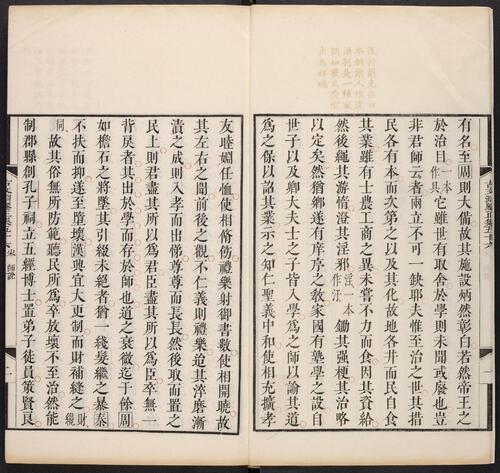 有名至周則大備故其施設炳然彰白若然帝王之
於治目一本作具它雖世有取舍於學則未聞或廢也豈
非君師云者兩立不可一缺耶夫惟至治之世其措
民各有本而次第之以及其化故地各井而民自食
其業雖有士農工商之異未嘗不力而食因其資給
然後繩其游惰澄其淫邪淫一本作汪鋤其强梗其治略
以定矣然猶鄉遂有庠序之敎家國有塾學之設自
世子以及卿大夫士之子皆入學爲之師以諭其道
爲之保以詔其業示之知仁聖義中和使相充擴孝
友睦婣任恤使相脩飭禮樂射御書數使相開曉故
其左右之聞前後之觀不仁義則禮樂造其淬磨漸
漬之成則入孝而出悌尊尊而長長然後取而置之
民上則君盡其所以爲君臣盡其所以爲臣卒無一
背戾者其出於學而存於師也道之衰微迄于餘周
如檐石之將墜其引綴未絶者猶一綫髮繼之暴秦
不扶而抑遂至墮壞漢興宜大更制而財補縫之財一作纔
同故其俗無所防範聽民所爲卒放壞不至治然能
制郡縣創孔子祠立五經博士置弟子徒員策賢良